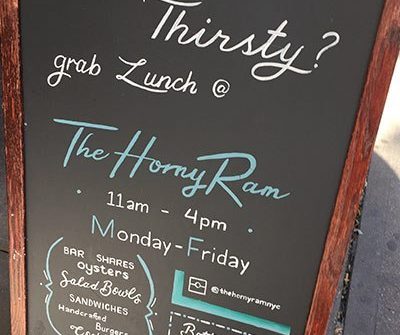 Thirsty?
grab Lunch @
The Horny Ram
11am - 4pm
Monday-Friday
BAR SHARES
oysters
Salad Bowls
SANDWICHES
Handcrafted
Burgers
@thehornyramnyc